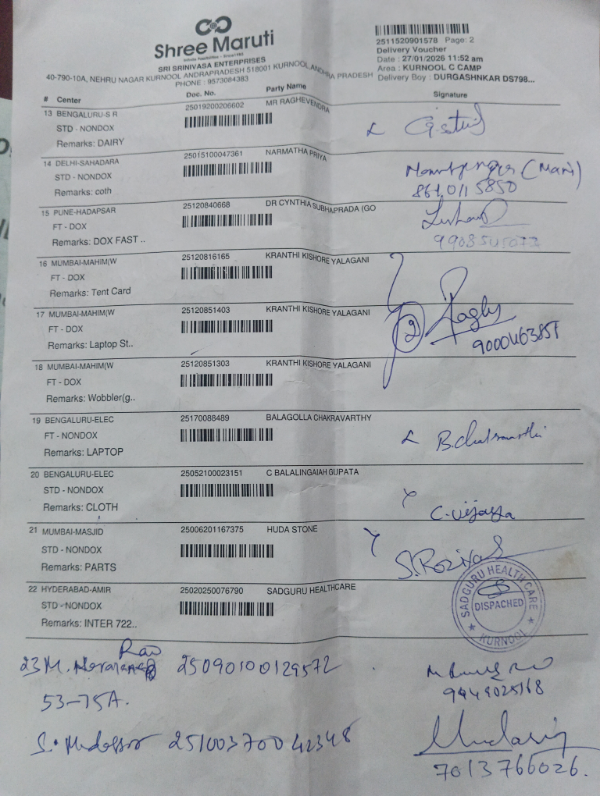 Shree Maruti
SRI SRINIVASA ENTERPRISES
40-790-10A, NEHRU NAGAR KURNOOL ANDRAPRADESH 518001 KURNOOL ANDHRA PRADESH
PHONE : 9573084383
2511520901578 Page: 2
Delivery Voucher
Date : 27/01/2026 11:52 am
Area : KURNOOL C CAMP
Delivery Boy : DURGASHNKAR DS798...
# Center Doc. No. Party Name Signature
13 BENGALURU-S R 25019200206602 MR RAGHEVENDRA
STD - NONDOX
Remarks: DAIRY
14 DELHI-SAHADARA 25015100047361 NARMATHA PRIYA
STD - NONDOX
Remarks: coth
(Mani)
861 0115850
15 PUNE-HADAPSAR 25120840668 DR CYNTHIA SUBHAPRADA (GO
FT - DOX
Remarks: DOX FAST ..
16 MUMBAI-MAHIM(W 25120816165 KRANTHI KISHORE YALAGANI
FT - DOX
Remarks: Tent Card
17 MUMBAI-MAHIM(W 25120851403 KRANTHI KISHORE YALAGANI
FT - DOX
Remarks: Laptop St..
Raghu
9000463857
18 MUMBAI-MAHIM(W 25120851303 KRANTHI KISHORE YALAGANI
FT - DOX
Remarks: Wobbler(g..
19 BENGALURU-ELEC 25170088489 BALAGOLLA CHAKRAVARTHY
FT - NONDOX
Remarks: LAPTOP
20 BENGALURU-ELEC 25052100023151 C BALALINGAIAH GUPATA
STD - NONDOX
Remarks: CLOTH
C. Vijayya
21 MUMBAI-MASJID 25006201167375 HUDA STONE
STD - NONDOX
Remarks: PARTS
22 HYDERABAD-AMIR 25020250076790 SADGURU HEALTHCARE
STD - NONDOX
Remarks: INTER 722..
SADGURU HEALTH CARE
DISPACHED
KURNOOL
Rao
23 M. 25090100129572
9449025168
53-75A.
S. 25100370042348
7013766026.